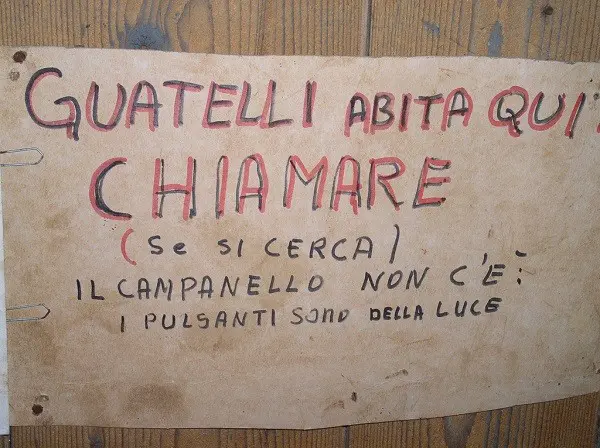 GUATELLI ABITA QUI:
CHIAMARE
(Se SI CERCA)
IL CAMPANELLO NON C'È:
I PULSANTI SONO DELLA LUCE